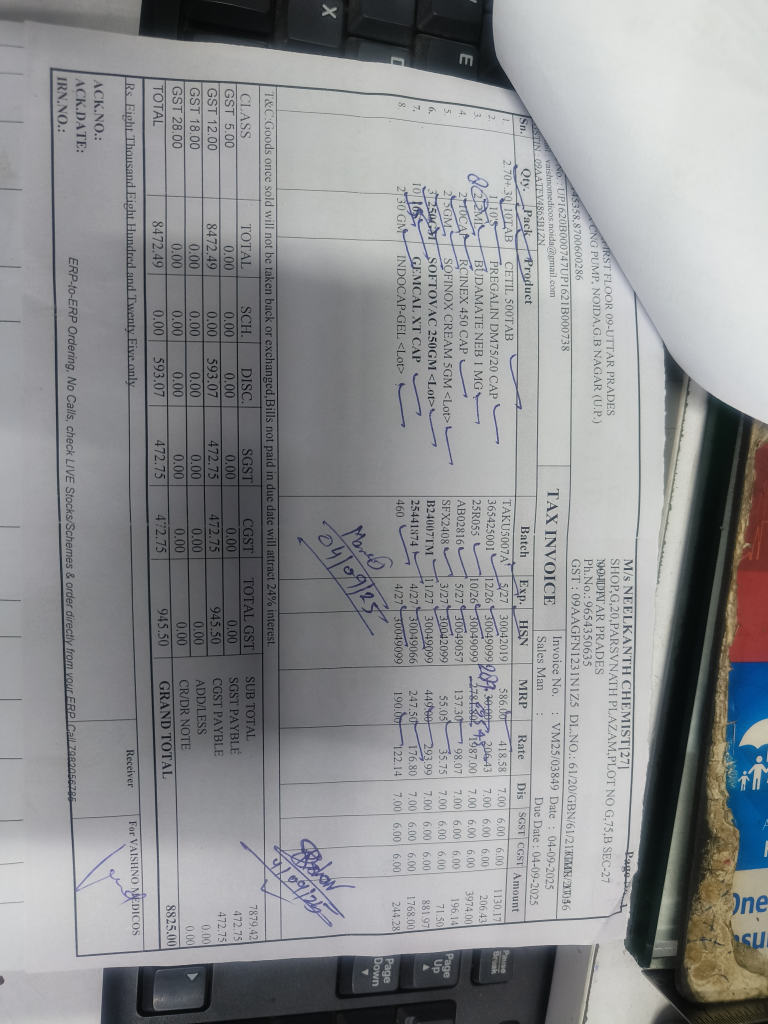 FIRST FLOOR 09-UTTAR PRADES
CNG PUMP, NOIDA,G.B NAGAR (U.P.)
45358,8700600286
UP1620B000747UP1621B000738
vaishnomedicos.noida@gmail.com
09AATFV4865B1ZN
Page No. 1
M/s NEELKANTH CHEMIST[27]
SHOP.G,20,PARSVNATH PLAZAM,PLOT NO G,75,B SEC-27
Ph.No.: 9654350635
GST : 09AAGFN1231N1Z5 DL.NO.: 61/20/GBN/61/21
TAX INVOICE
Invoice No. : VM25/03849 Date : 04-09-2025
Sales Man : Due Date : 04-09-2025
Sn. Qty. Pack Product Batch Exp. HSN MRP Rate Dis SGST CGST Amount
1. 2.70+.30 10TAB CETIL 500TAB TAKU5007A 5/27 30042019 586.00 418.58 7.00 6.00 6.00 1130.17
2. 1 10'S PREGALIN DM75/20 CAP 365425001 12/26 30049099 206.43 7.00 6.00 6.00 206.43
3. BUDAMATE NEB 1 MG 25R055 10/26 30049099 1987.00 7.00 6.00 6.00 3974.00
4. 2 10CAP RCINEX 450 CAP AB02816 5/27 30049057 137.30 98.07 7.00 6.00 6.00 196.14
5. 2 5GM SOFINOX CREAM 5GM <Lot> SFX2408 3/27 30042099 55.05 35.75 7.00 6.00 6.00 71.50
6. 3 250GM SOFTOVAC 250GM <Lot> B24007TM 11/27 30049099 449.00 293.99 7.00 6.00 6.00 881.97
7. 10 GEMCAL XT CAP 25441874 4/27 30049066 247.50 176.80 7.00 6.00 6.00 1768.00
8. 2 30 GM INDOCAP-GEL <Lot> 460 4/27 30049099 190.00 122.14 7.00 6.00 6.00 244.28
04/09/25
4/09/25
T&C:Goods once sold will not be taken back or exchanged.Bills not paid in due date will attract 24% interest.
CLASS TOTAL SCH. DISC. SGST CGST TOTAL GST
GST 5.00 0.00 0.00 0.00 0.00 0.00 0.00
GST 12.00 8472.49 0.00 593.07 472.75 472.75 945.50
GST 18.00 0.00 0.00 0.00 0.00 0.00 0.00
GST 28.00 0.00 0.00 0.00 0.00 0.00 0.00
TOTAL 8472.49 0.00 593.07 472.75 472.75 945.50
SUB TOTAL 7879.42
SGST PAYBLE 472.75
CGST PAYBLE 472.75
ADD/LESS 0.00
CR/DR NOTE 0.00
GRAND TOTAL 8825.00
Rs. Eight Thousand Eight Hundred and Twenty Five only
Receiver
For VAISHNO MEDICOS
ACK.NO.:
ACK.DATE:
IRN.NO.:
ERP-to-ERP Ordering, No Calls, check LIVE Stocks/Schemes & order directly from your ERP. Call 7982056785
X
E
Pause
Break
Page
Up
Page
Down
One